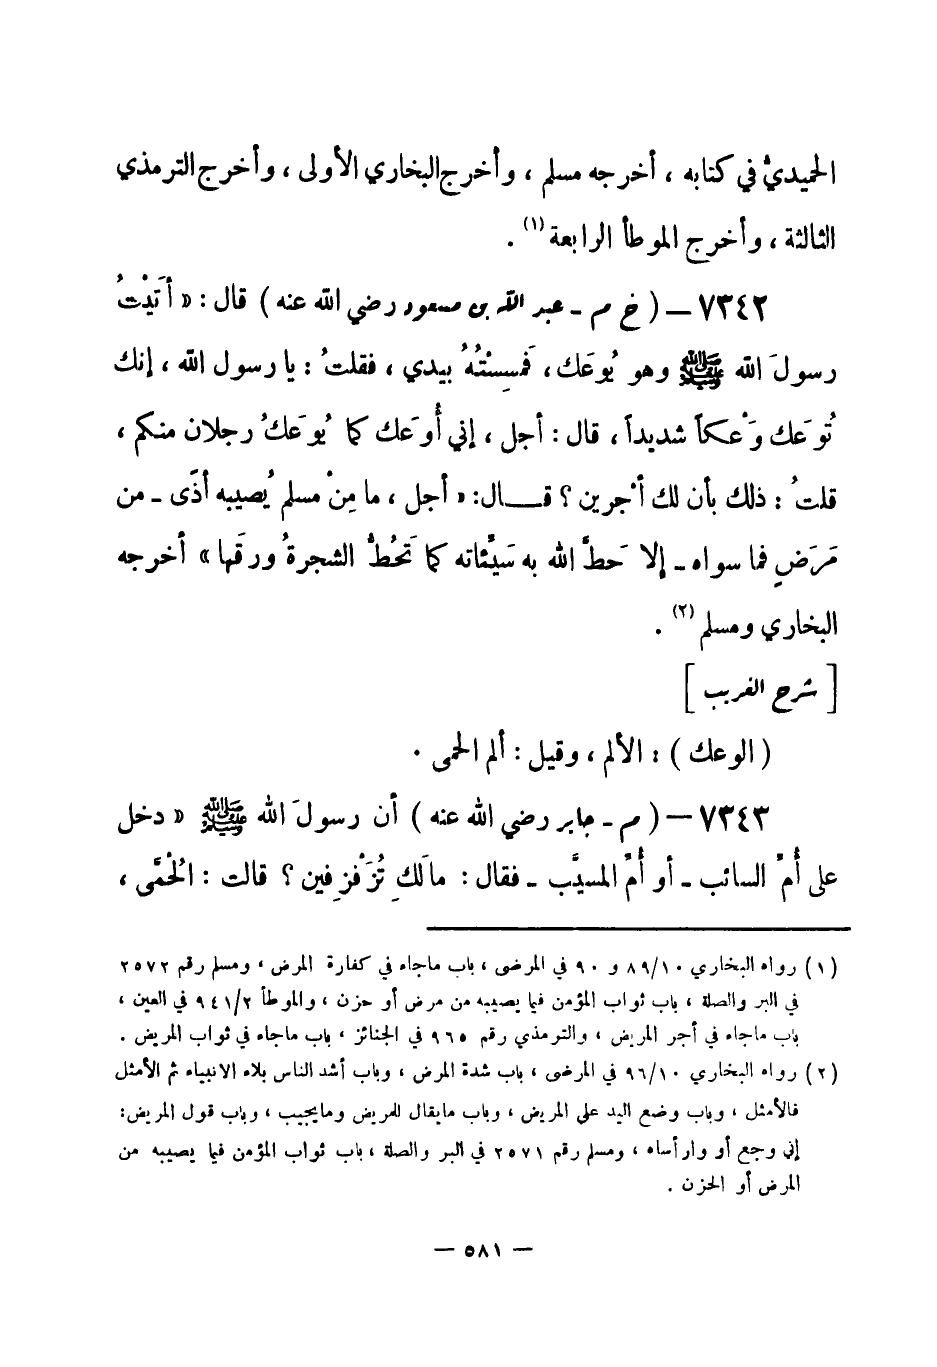 الحميديُّ في كتابه ، أخرجه مسلم ، وأخرج البخاري الأولى ، وأخرج الترمذي
الثالثة ، وأخرج الموطأ الرابعة (١) .
٧٣٤٢ – ( خ م - عبد الله بن مسعود رضي الله عنه ) قال : « أَتَيْتُ
رسولَ الله ﷺ وهو يُوعَك ، فَمَسِسْتُهُ بيدي ، فقلتُ : يا رسول الله ، إنك
تُوعَك وَعْكاً شديداً ، قال : أجل ، إني أُوعَك كما يُوعَكُ رجلان منكم ،
قلتُ : ذلك بأن لك أجرين ؟ قـــال : « أجل ، ما مِنْ مسلم يُصيبه أذًى - من
مَرَضٍ فما سواه - إلا حَطَّ الله به سَيِّئاته كما تَحُطُّ الشجرةُ ورقَها » أخرجه
البخاري ومسلم (٢) .
[ شرح الغريب ]
( الوعك ) : الألم ، وقيل : ألم الحمى .
٧٣٤٣ – ( م - جابر رضي الله عنه ) أن رسولَ الله ﷺ « دخل
على أُمِّ السائب - أو أُمِّ المسيَّب - فقال : مالَكِ تُزَفْزِفين ؟ قالت : الحُمَّى ،
(١) رواه البخاري ٨٩/١٠ و ٩٠ في المرضى ، باب ماجاء في كفارة المرض ، ومسلم رقم ٢٥٧٢
في البر والصلة ، باب ثواب المؤمن فيما يصيبه من مرض أو حزن ، والموطأ ٩٤١/٢ في العين ،
باب ماجاء في أجر المريض ، والترمذي رقم ٩٦٥ في الجنائز ، باب ماجاء في ثواب المريض .
(٢) رواه البخاري ٩٦/١٠ في المرضى ، باب شدة المرض ، وباب أشد الناس بلاء الانبياء ثم الأمثل
فالأمثل ، وباب وضع اليد على المريض ، وباب مايقال للمريض ومايجيب ، وباب قول المريض:
إني وجع أو وارأساه ، ومسلم رقم ٢٥٧١ في البر والصلة ، باب ثواب المؤمن فيما يصيبه من
المرض أو الحزن .
— ٥٨١ —